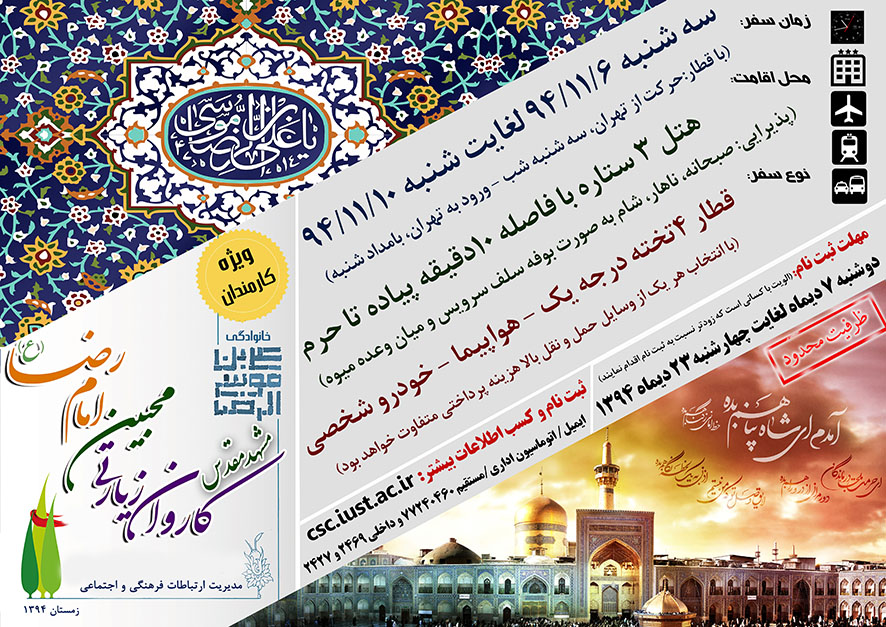 زمان سفر:
سه شنبه ۹۴/۱۱/۶ لغایت شنبه ۹۴/۱۱/۱۰
(با قطار:حرکت از تهران، سه شنبه شب - ورود به تهران، بامداد شنبه)
محل اقامت:
هتل ۳ ستاره با فاصله ۱۰دقیقه پیاده تا حرم
(پذیرایی: صبحانه، ناهار، شام به صورت بوفه سلف سرویس و میان وعده میوه)
نوع سفر:
قطار ۴تخته درجه یک - هواپیما - خودرو شخصی
(با انتخاب هر یک از وسایل حمل و نقل بالا هزینه پرداختی متفاوت خواهد بود)
مهلت ثبت نام: (الویت با کسانی است که زودتر نسبت به ثبت نام اقدام نمایند)
دوشنبه ۷ دیماه لغایت چهارشنبه ۲۳ دیماه ۱۳۹۴
ظرفیت محدود
ثبت نام و کسب اطلاعات بیشتر: csc.iust.ac.ir
ایمیل / اتوماسیون اداری / مستقیم ۷۷۲۴۰۴۶۰ و داخلی ۲۴۶۹ و ۲۴۲۷
یا علی بن موسی الرضا
ویژه
کارمندان
خانوادگی
علی بن
موسی
الرضا
کاروان زیارتی
مشهد مقدس
محبین
امام
رضا (ع)
مدیریت ارتباطات فرهنگی و اجتماعی
زمستان ۱۳۹۴
آمدم ای شاه پناهم بده